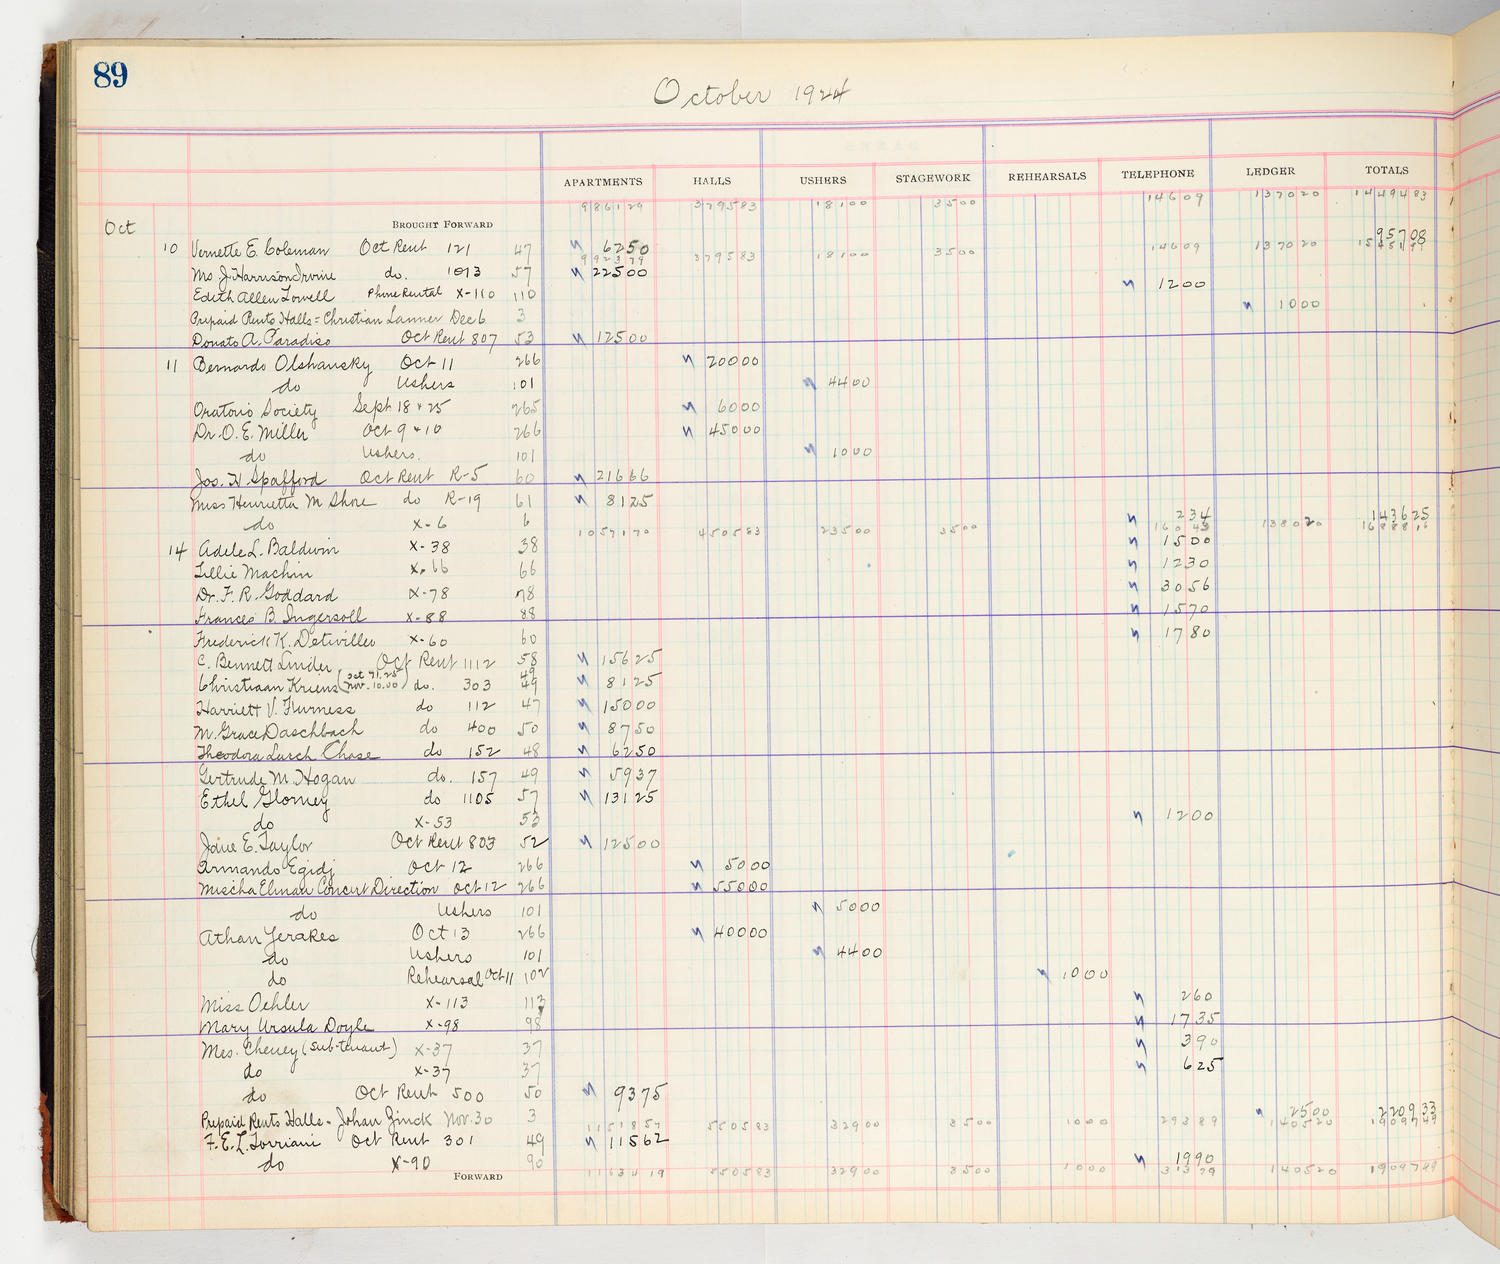 89
October 1924
APARTMENTS HALLS USHERS STAGEWORK REHEARSALS TELEPHONE LEDGER TOTALS
986129 379583 18100 3500 14609 137020 1449483
Oct BROUGHT FORWARD
95708
10 Vernette E. Coleman Oct Rent 121 47 6250
992379 379583 18100 3500 14609 137020
Ms J. Harrison Irvine do. 1013 57 22500
Edith Allen Lowell Phone Rental X-110 110 1200
Prepaid Rents Halls = Christian Lanner Dec 6 3 1000
Donato A. Paradiso Oct Rent 807 53 12500
11 Bernardo Olshansky Oct 11 266 20000
do Ushers 101 4400
Oratorio Society Sept 18 + 25 265 6000
Dr. O. E. Miller Oct 9 + 10 266 45000
do Ushers. 101 1000
Jos. H Spafford Oct Rent R-5 60 21666
Miss Henrietta M Shore do R-19 61 8125
do X-6 6 234 143625
1057170 450583 23500 3500 16043 138020
14 Adele L. Baldwin X-38 38 1500
Lillie Machin X-66 66 1230
Dr. F. R. Goddard X-78 78 3056
Frances B. Ingersoll X-88 88 1570
Frederick K. Detwiller X-60 60 1780
C. Bennett Linder Oct Rent 1112 58 15625
Christiaan Kriens (Oct 71.25 Nov. 10.00) do. 303 49 8125
Harriett V. Furness do 112 47 15000
M. Grace Daschbach do 400 50 8750
Theodora Lurch Chase do 152 48 6250
Gertrude M. Hogan do. 157 49 5937
Ethel Glorney do 1105 57 13125
do X-53 53 1200
Jane E. Taylor Oct Rent 803 52 12500
Armando Egidj Oct 12 266 5000
Mischa Elman Concert Direction Oct 12 266 55000
do Ushers 101 5000
Athan Yerakes Oct 13 266 40000
do Ushers 101 4400
do Rehearsal Oct 11 102 1000
Miss Oehler X-113 113 260
Mary Ursula Doyle X-98 98 1735
Mrs. Cheney (Sub-tenant) X-37 37 390
do X-37 37 625
do Oct Rent 500 50 9375
Prepaid Rents Halls - Johan Zinck Nov. 30 3 2500 220933
1151857 550583 32900 3500 1000 29389 140520 1909749
F. E. L. Torriani Oct Rent 301 49 11562
do X-90 90 1990
FORWARD 1163419 550583 32900 3500 1000 31379 140520 1909749